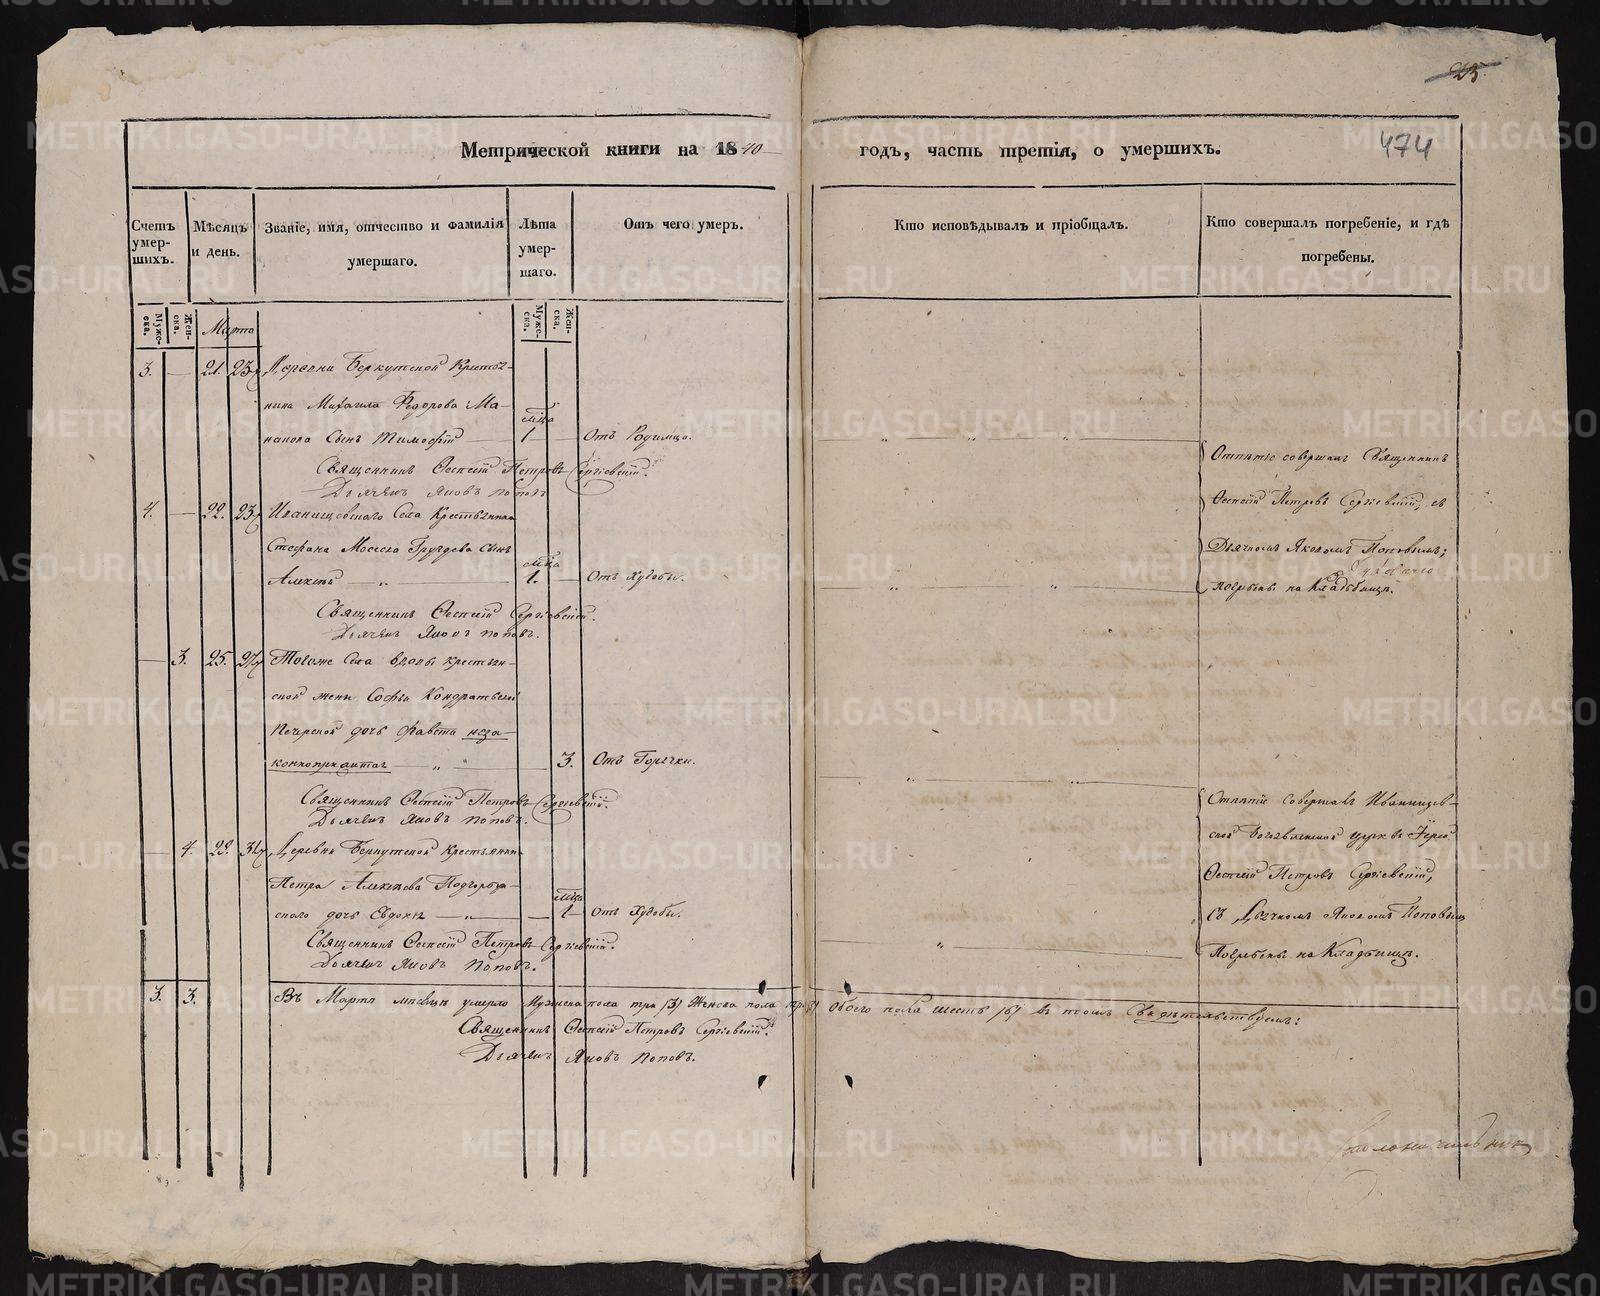 25.
474
Метрической книги на 1840 годъ, часть третія, о умершихъ.
Счетъ умер-шихъ.
Мѣсяцъ и день.
Званіе, имя, отчество и фамилія умершаго.
Лѣта умер-шаго.
Отъ чего умер.
Кто исповѣдывалъ и пріобщалъ.
Кто совершалъ погребеніе, и гдѣ погребены.
Муже-ска.
Жен-ска.
Марта
Муже-ска.
Жен-ска.
3. 21. 23. Деревни Беркутской Крестья-
нина Михаила Федорова Ма-
накова Сынъ Тимофей 1 мѣца Отъ Родимца.
Священникъ Петровъ Сергіевскій.
Дьячекъ Яковъ Поповъ
4. 22. 23. Иванищевскаго Села Крестьянина
Стефана Моисеева Груздева сынъ
Алексѣй 1. мѣца Отъ Худобы.
Священникъ Сергіевскій.
Дьячекъ Яковъ Поповъ.
3. 25. 27. Тогоже Села вдовы крестьян-
ской жены Софьи Кондратьевой
Печерской дочь неза-
конноприжитая 3. Отъ Горячки.
Священникъ Петровъ Сергіевскій.
Дьячекъ Яковъ Поповъ.
4. 29. 31. Деревни Беркутской Крестьянина
Петра Алексѣева
дочь Евдокія 1 мѣца Отъ Худобы.
Священникъ Петровъ Сергіевскій.
Дьячекъ Яковъ Поповъ.
Отпѣтіе совершалъ Священникъ
Петровъ Сергіевскій, съ
Дьячкомъ Яковомъ Поповымъ;
погребены на Кладбищѣ.
Отпѣтіе совершалъ Иванищев-
ской Богоявленской церкви Іерей
Петровъ Сергіевскій,
съ Дьячкомъ Яковомъ Поповымъ
Погребены на Кладбищѣ.
3. 3. Въ Мартѣ мѣсяцѣ умерло Мужеска пола три /3/ Женска пола три /3/ Обоего пола шесть /6/ въ томъ Свидѣтельствуемъ:
Священникъ Петровъ Сергіевскій.
Дьячекъ Яковъ Поповъ.
METRIKI.GASO-URAL.RU